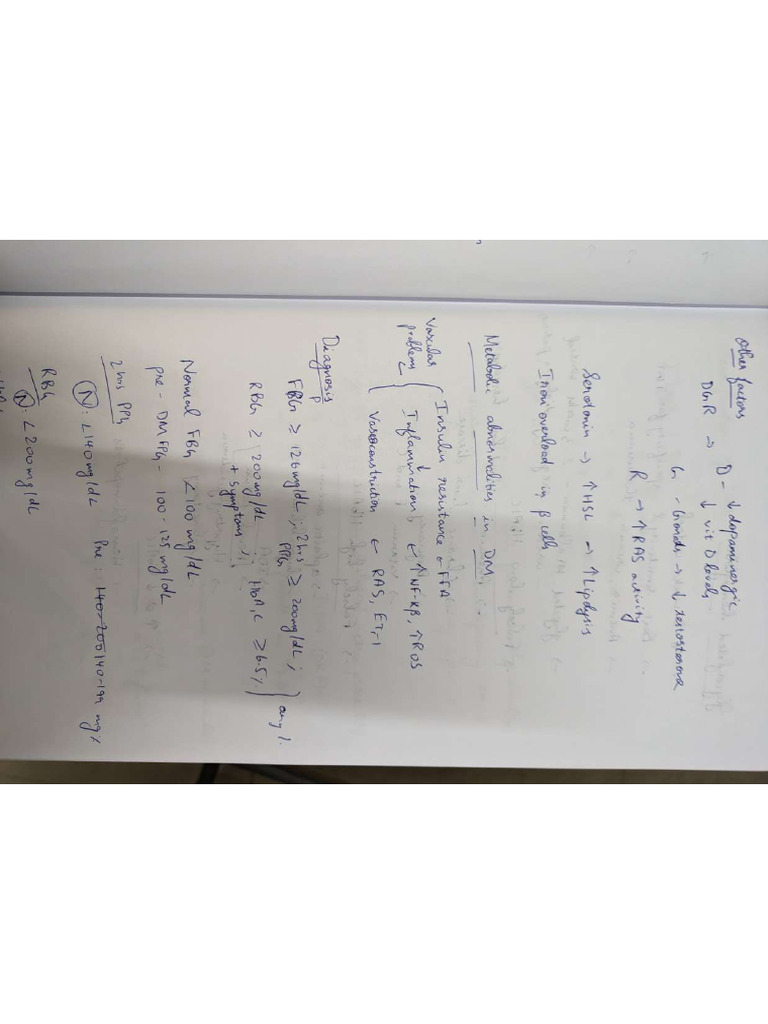 Other factors
DGR → D - ↓ dopaminergic
↓ vit D levels
G - Gonads → ↓ testosterone
R → ↑ RAS activity
Serotonin → ↑ HSL → ↑ Lipolysis
Iron overload in β cells
Metabolic abnormalities in DM
Vascular problems { Insulin resistance ← FFA
↓
Inflammation ← ↑ NF-κβ, ↑ ROS
Vasoconstriction ← RAS, ET-1
Diagnosis
FBG ≥ 126 mg/dL ; 2hrs PPG ≥ 200mg/dL ;
RBG ≥ 200mg/dL + symptoms ; HbA1C ≥ 6.5 % } any 1.
Normal FBG < 100 mg/dL
Pre - DM FPG - 100 - 125 mg/dL
2 hrs PPG
(N) : < 140 mg/dL Pre : 140-200 140-199 mg%
RBG
(N) : < 200mg/dL